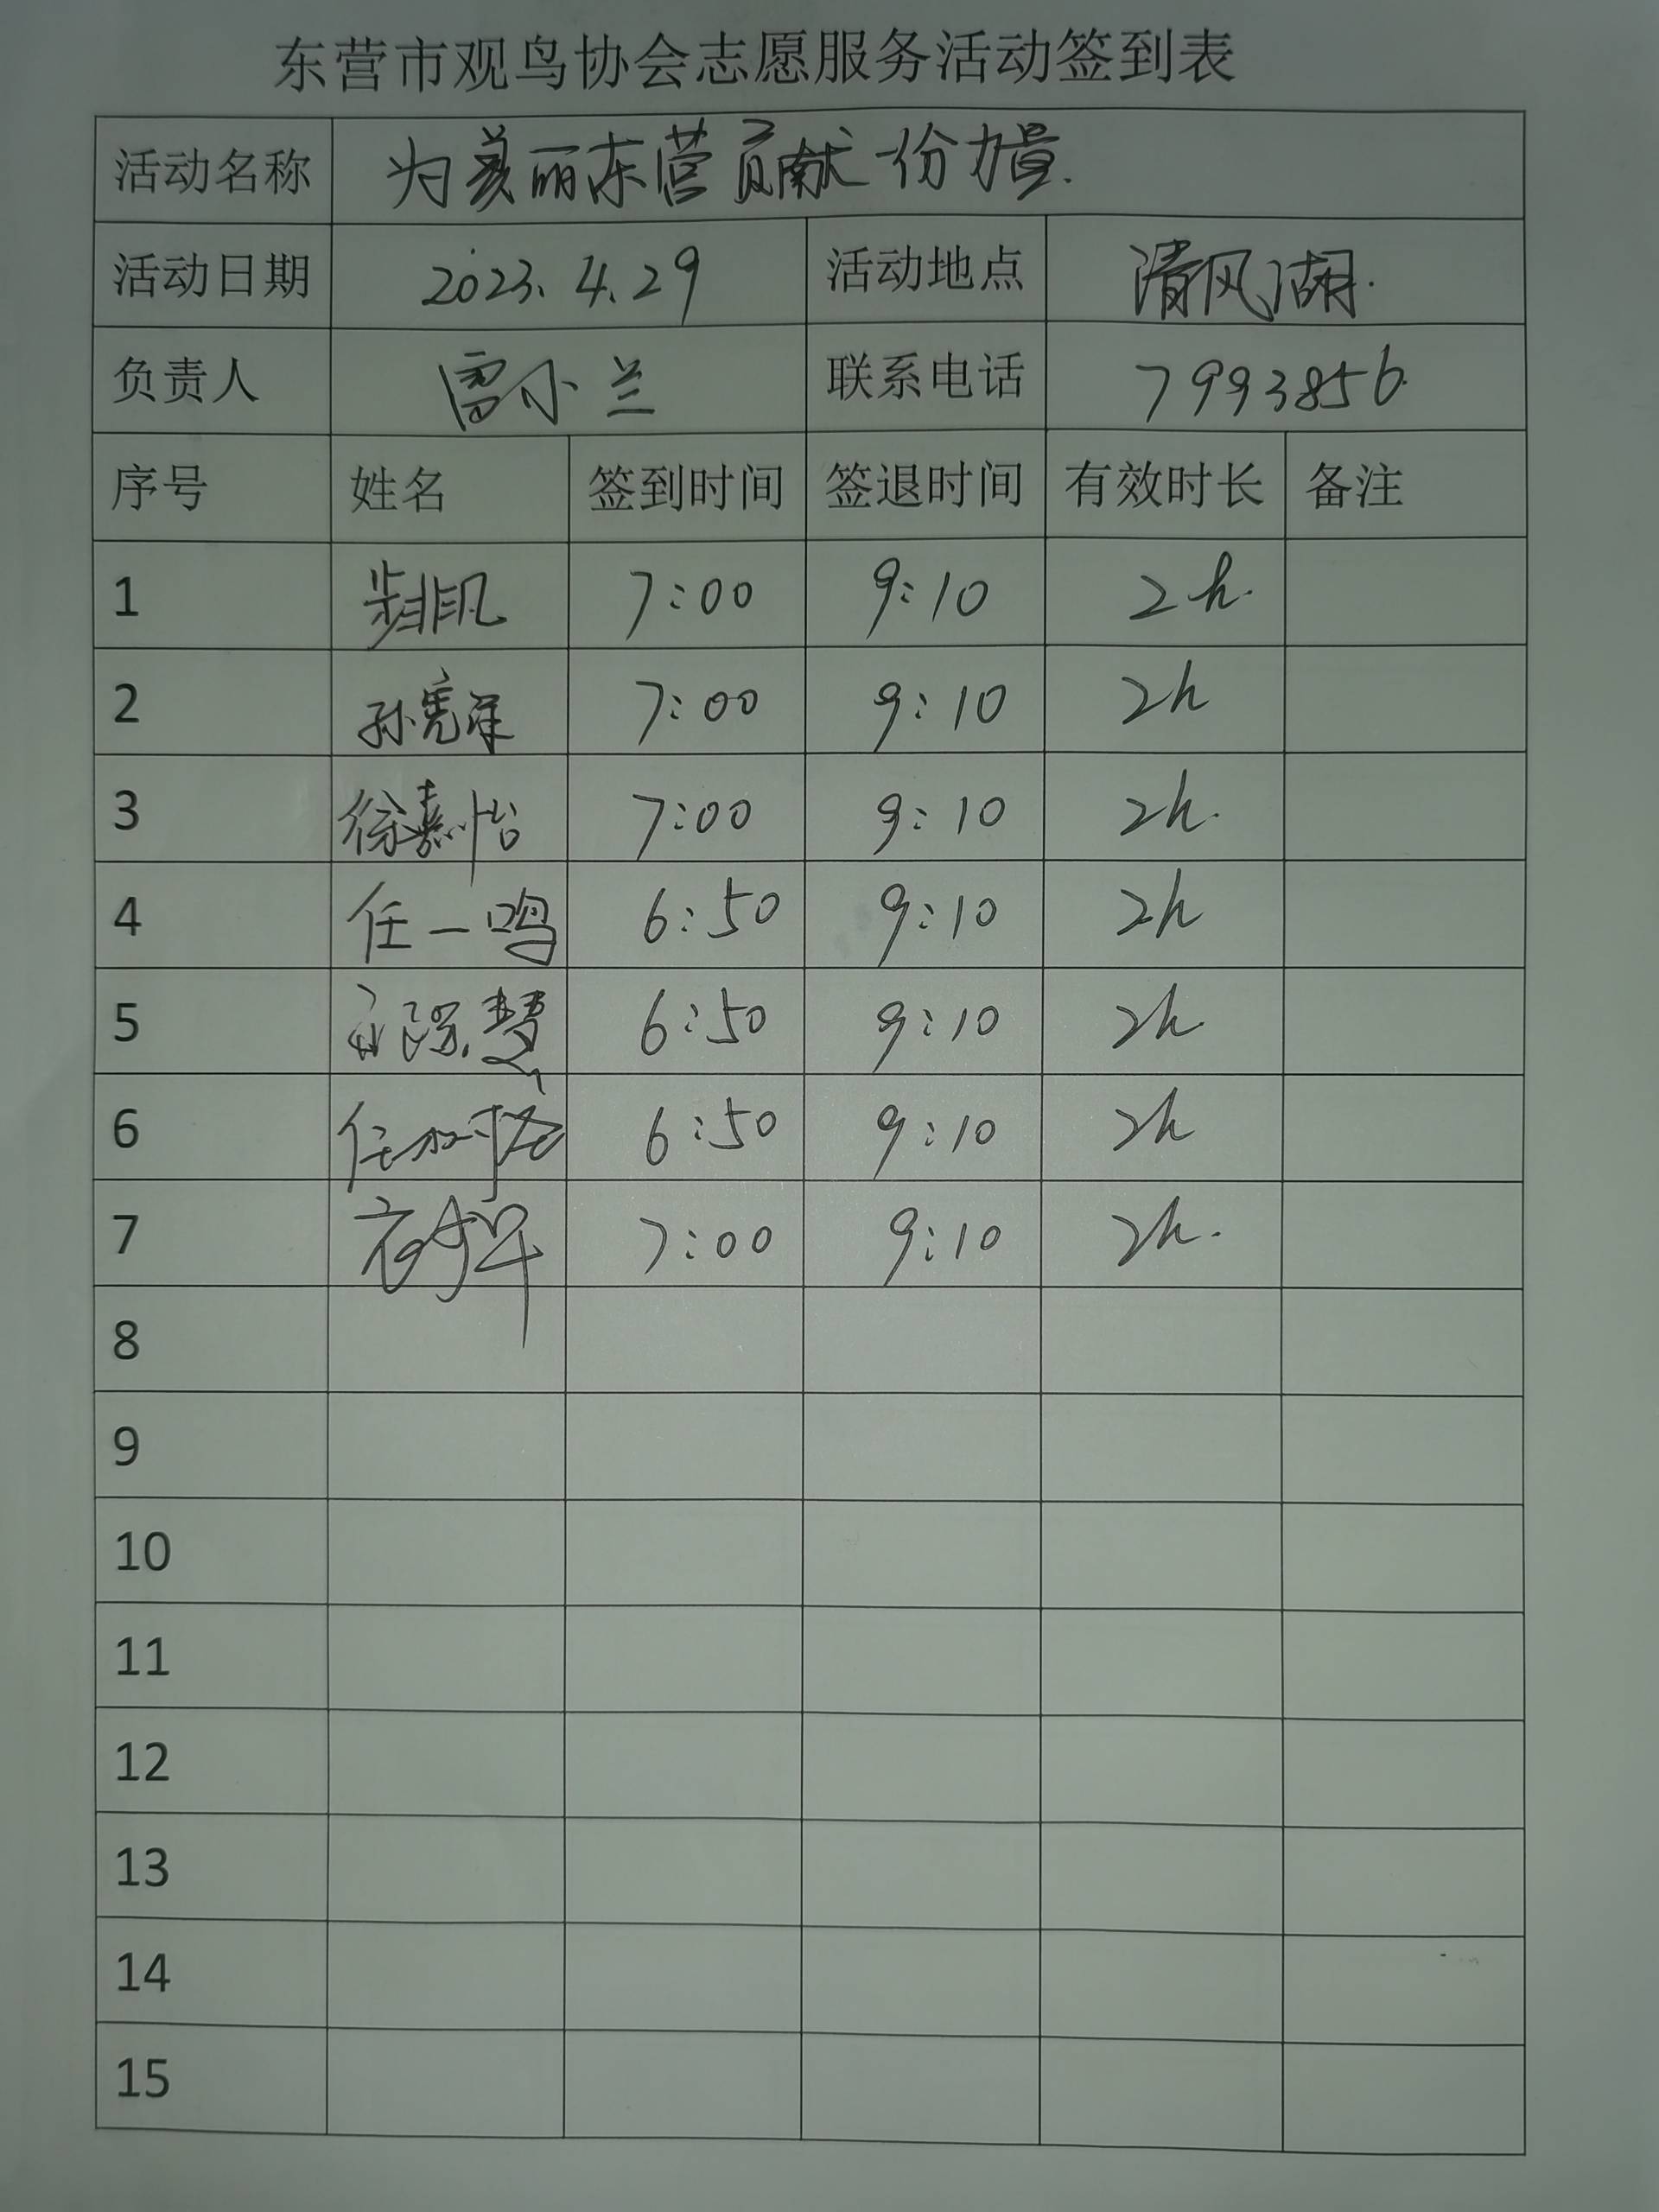 东营市观鸟协会志愿服务活动签到表
活动名称 为美丽东营贡献一份力量.
活动日期 2023.4.29 活动地点 清风湖.
负责人 雷小兰 联系电话 7993856
序号 姓名 签到时间 签退时间 有效时长 备注
1 步非凡 7:00 9:10 2h.
2 孙宪 7:00 9:10 2h
3 徐嘉怡 7:00 9:10 2h.
4 任一鸣 6:50 9:10 2h
5 慧 6:50 9:10 2h
6 任 6:50 9:10 2h
7 7:00 9:10 2h.
8
9
10
11
12
13
14
15